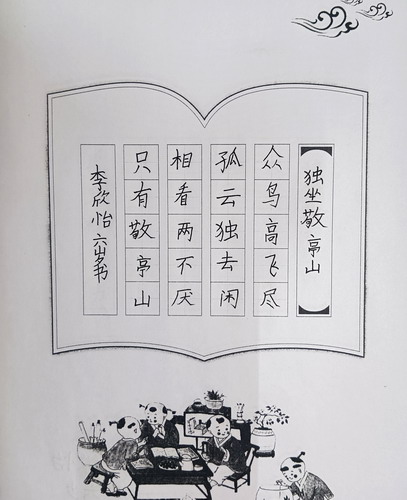 独坐敬亭山
众鸟高飞尽
孤云独去闲
相看两不厌
只有敬亭山
李欣怡 六岁书